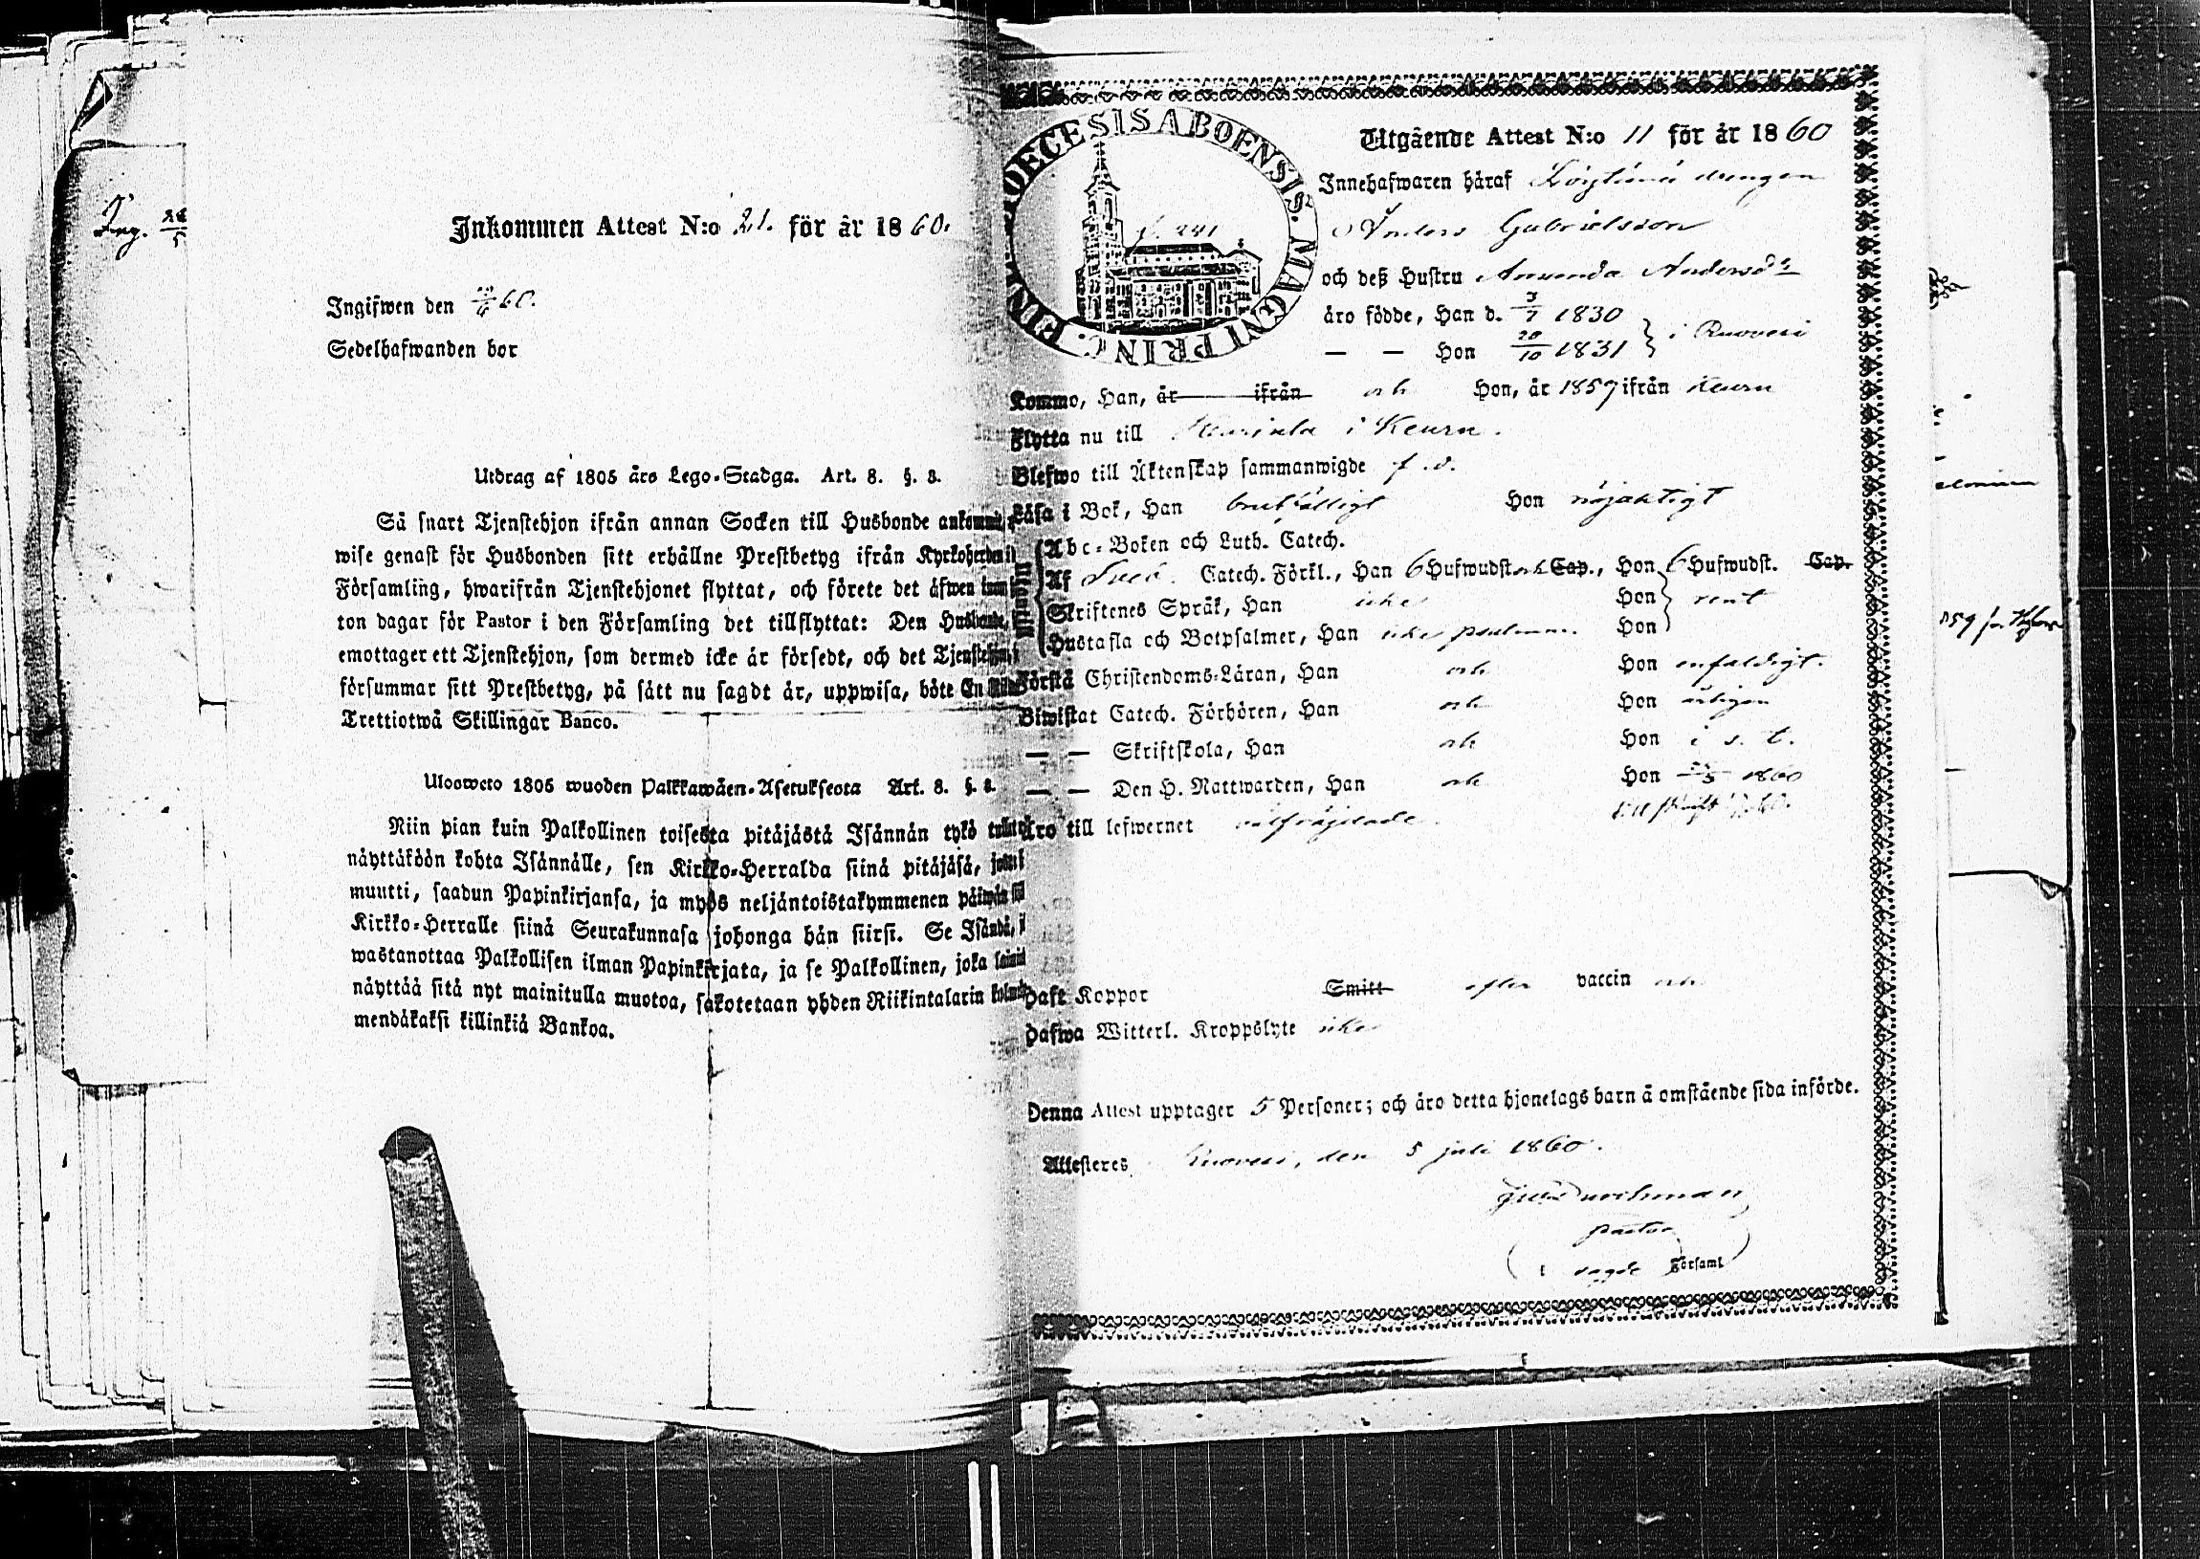 Ing. 24/5
Inkommen Attest N:o 21. för år 1860.
Ingifwen den 60.
Sedelhafwanden bor
Utdrag af 1805 års Lego-Stadga. Art. 8. §. 8.
Så snart Tjenstehjon ifrån annan Socken till Husbonde
wise genast för Husbonden sitt erhållne Prestbetyg ifrån Kyrkoherden i
Församling, hwarifrån Tjenstehjonet flyttat, och förete det äfwen
ton dagar för Pastor i den Församling det tillflyttat: Den Husbonde,
emottager ett Tjenstehjon, som dermed icke är försedt, och det Tjenstehjon,
försummar sitt Prestbetyg, på sätt nu sagdt är, uppwisa, böte En
Trettiotwå Skillingar Banco.
Uloswcto 1805 wuoden Palkkawäen-Asetuksesta Art. 8. §. 8.
Niin pian kuin Palkollinen toisesta pitäjästä Isännän tykö
näyttäköön kohta Isännälle, sen Kirkko-Herralda siinä pitäjäsä,
muutti, saadun Papinkirjansa, ja myös neljäntoistakymmenen päiwän
Kirkko-Herralle siinä Seurakunnasa johonga hän siirsi. Se Isändä,
wastanottaa Palkollisen ilman Papinkirjata, ja se Palkollinen, joka
näyttää sitä nyt mainitulla muotoa, sakotetaan yhden Riikintalarin
mendäkaksi killinkiä Bankoa.
DIOECESIS ABOENSIS. MAGNI PRINC. FINL.
Utgående Attest N:o 11 för år 1860
Innehafwaren häraf drengen
Anders Gabrielsson
och deß Hustru Amanda Andersdr
äro födde, Han d. 3/7 1830
— — Hon 20/10 1831 } i Ruovesi
Kommo, Han, är ifrån och Hon, år 1859 ifrån Keuru
Flytta nu till i Keuru.
Blefwo till Äktenskap sammanwigde f. d.
Läsa i Bok, Han Hon nöjaktigt
Abc-Boken och Luth. Catech.
Af Sveb. Catech. Förkl., Han 6 Hufwudst. och Cap., Hon 6 Hufwudst. Cap.
Skriftenes Språk, Han icke Hon
Hustafla och Botpsalmer, Han icke psalmerna. Hon rent
Förstå Christendoms-Läran, Han och Hon enfaldigt.
Biwistat Catech. Förhören, Han och Hon årligen
— — Skriftskola, Han och Hon i s. t.
— — Den H. Nattwarden, Han och Hon 1860
Äro till lefwernet wälfrejdade
Haft Koppor Smitt efter vaccin och
Hafwa Witterl. Kroppslyte icke
Denna Attest upptager 5 Personer; och äro detta hjonelags barn å omstående sida införde.
Attesteres Ruovesi, den 5 juli 1860.
pastor
i sagde Församl